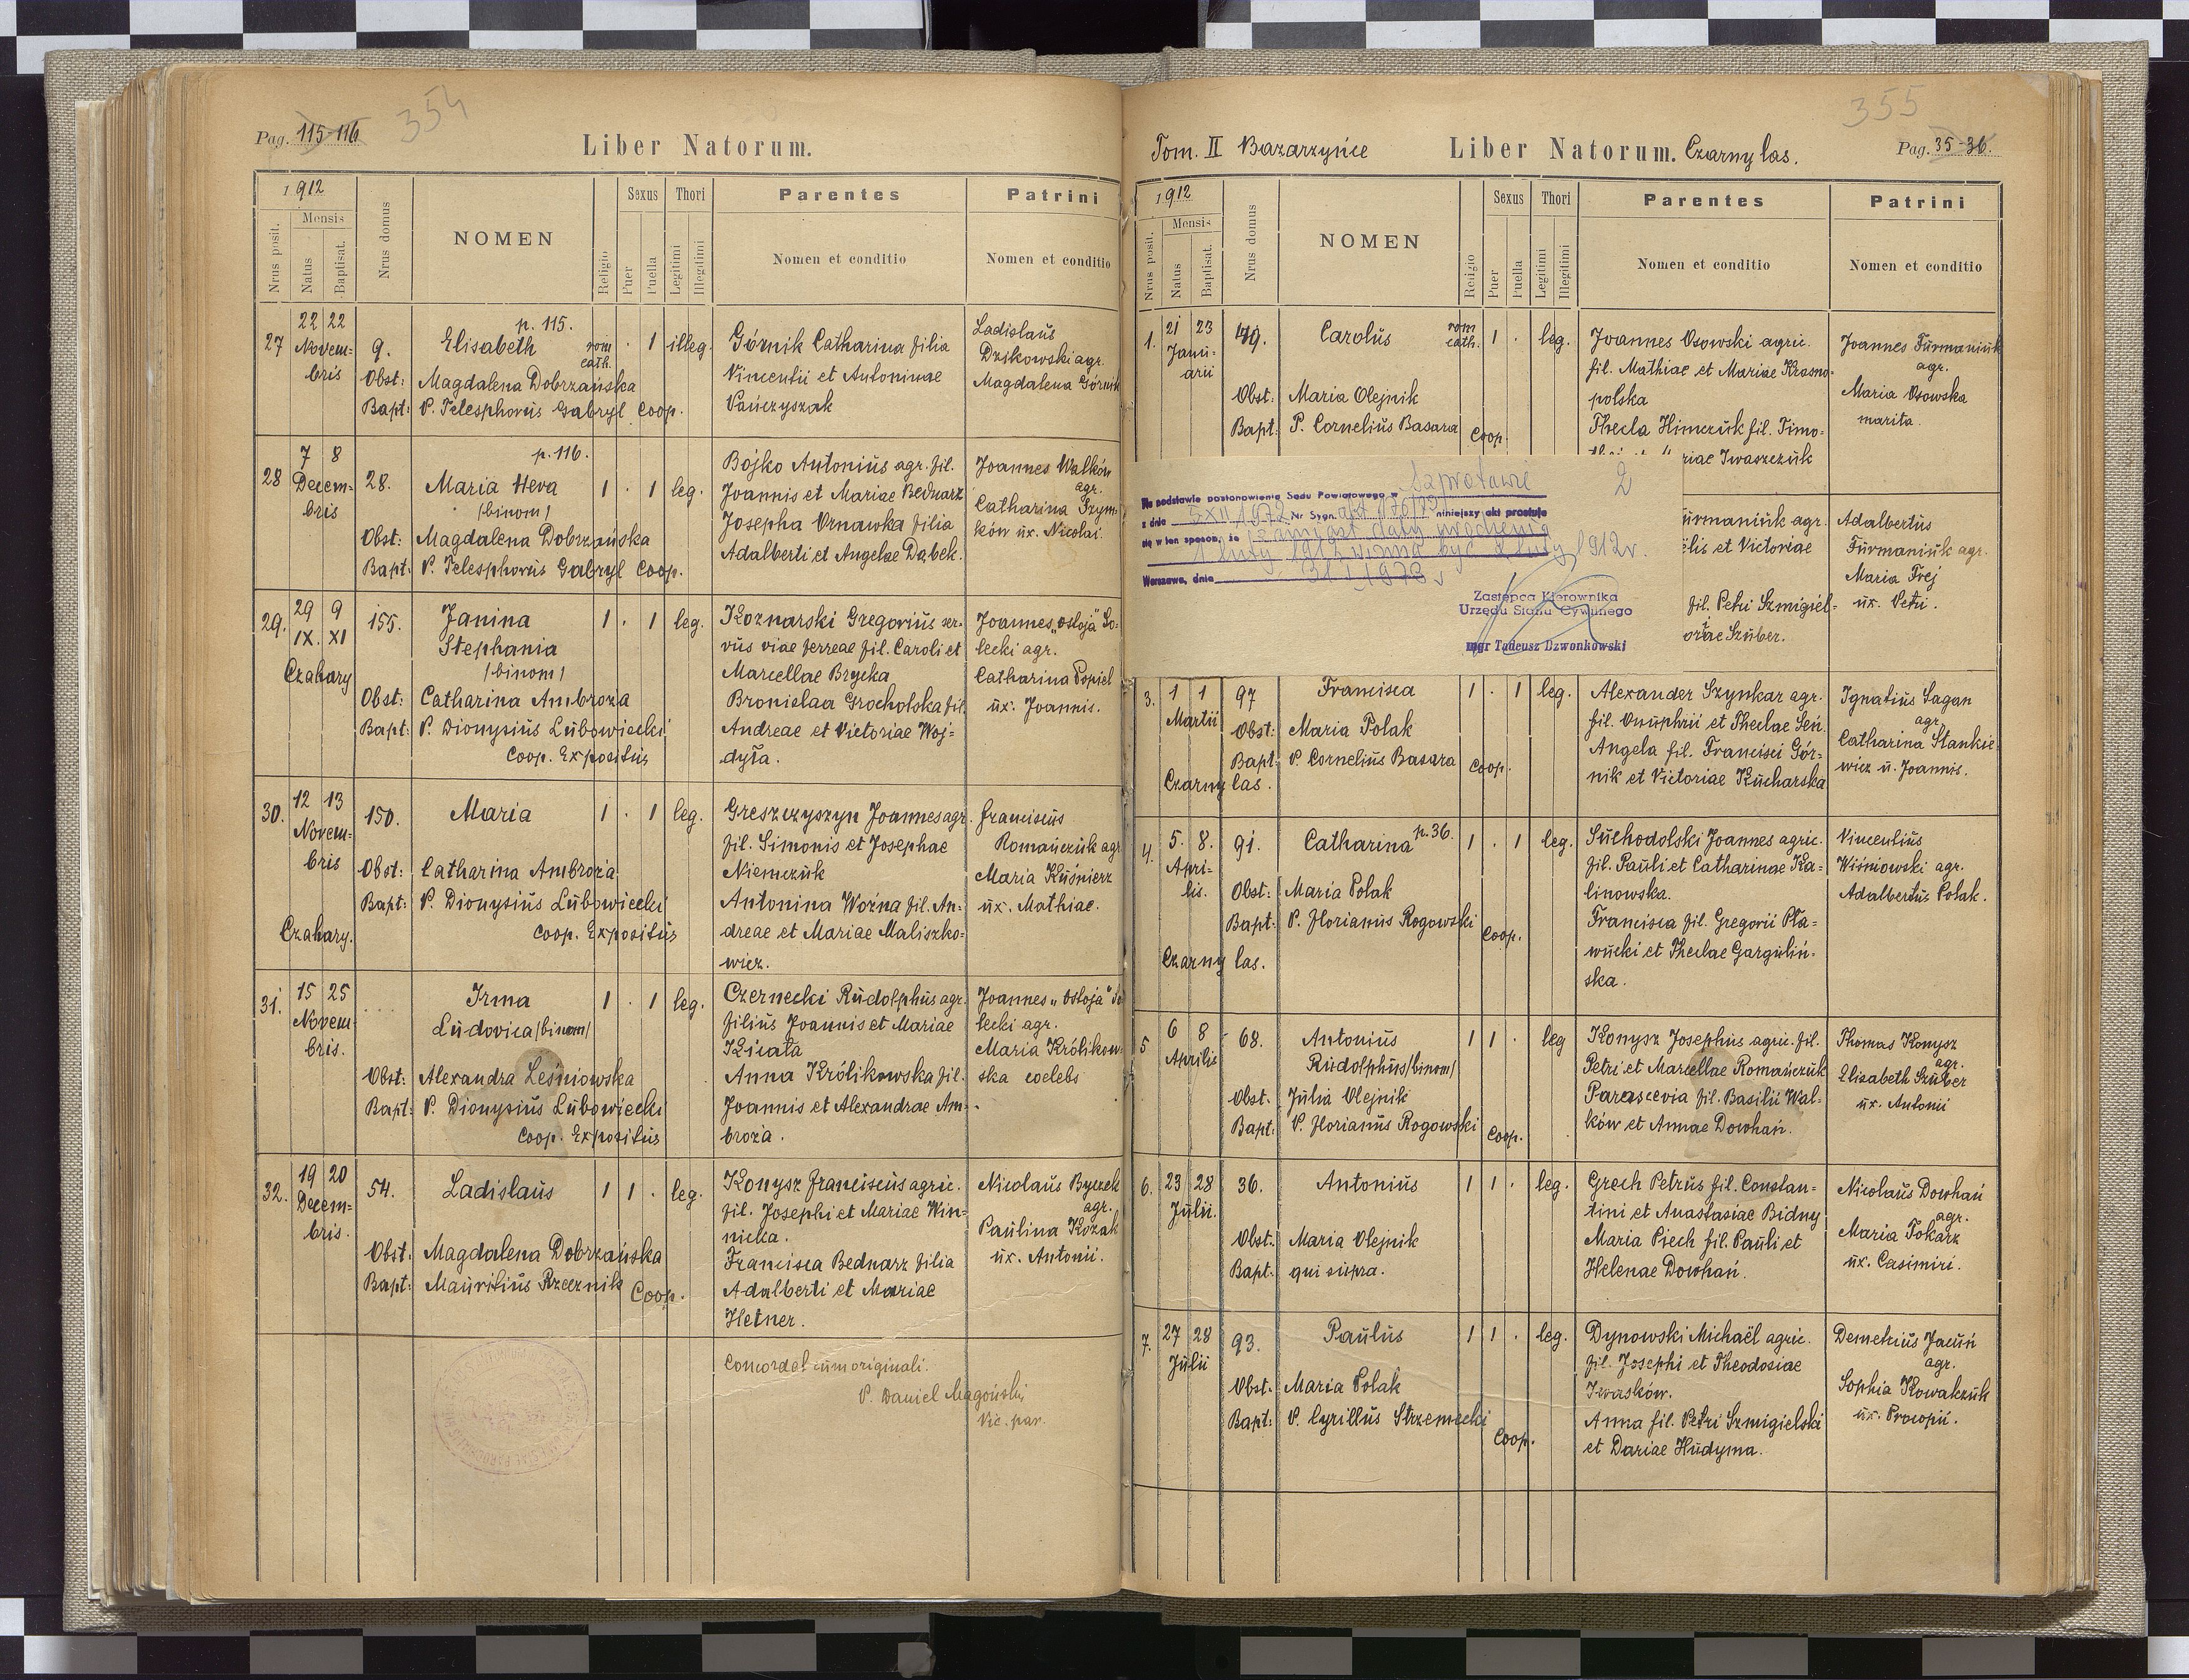 354
Pag. 115-116
Liber Natorum.
1912
Nrus posit.
Mensis
Natus
Baptisat.
Nrus domus
NOMEN
Religio
Sexus
Puer
Puella
Thori
Legitimi
Illegitimi
Parentes
Nomen et conditio
Patrini
Nomen et conditio
27
22 22
Novem-
bris
9.
p. 115.
Elisabeth
rom
cath.
. 1 illeg.
Obst: Magdalena Dobrzańska
Bapt: P. Telesphorus Gabryl Coop.
Górnik Catharina filia
Vincentii et Antoninae
Pańczyszak
Ladislaus
Dzikowski agr.
Magdalena Górnik
28
7 8
Decem-
bris
28.
p. 116.
Maria Heva
/binom/
1 . 1 leg.
Obst: Magdalena Dobrzańska
Bapt: P. Telesphorus Gabryl Coop.
Bojko Antonius agr. fil.
Joannis et Mariae Bednarz
Josepha Ornawka filia
Adalberti et Angelae Dąbek.
Joannes Walków
agr.
Catharina Szym-
ków ux. Nicolai.
29.
29 9
IX. XI
Czahary
155.
Janina
Stephania
/binom/
1 . 1 leg.
Obst: Catharina Ambroza
Bapt: P. Dionysius Lubowiecki
Coop. Expositus
Koznarski Gregorius ser-
vus viae ferreae fil. Caroli et
Marcellae Brycka
Bronislaa Grocholska fil.
Andreae et Victoriae Woj-
dyła.
Joannes „Ostoja" So-
lecki agr.
Catharina Popiel
ux. Joannis.
30.
12 13
Novem-
bris
Czahary.
150.
Maria
1 . 1 leg.
Obst: Catharina Ambroza
Bapt: P. Dionysius Lubowiecki
Coop. Expositus
Greszczyszyn Joannes agr.
fil. Simonis et Josephae
Niemczuk
Antonina Woźna fil. An-
dreae et Mariae Maliszko-
wicz.
Franciscus
Romańczuk agr
Maria Kuśnierz
ux. Mathiae.
31.
15 25
Novem-
bris.
....
Irma
Ludovica /binom/
1 . 1 leg.
Obst: Alexandra Leśniowska
Bapt: P. Dionysius Lubowiecki
Coop. Expositus
Czernecki Rudolphus agr.
filius Joannis et Mariae
Kicała
Anna Królikowska fil.
Joannis et Alexandrae Am-
broza.
Joannes „Ostoja" So
lecki agr.
Maria Królikow-
ska coelebs
32.
19 20
Decem-
bris.
54.
Ladislaus
1 1 . leg.
Obst: Magdalena Dobrzańska
Bapt: Mauritius Rzecznik Coop.
Konysz Franciscus agric.
fil. Josephi et Mariae Win-
nicka.
Francisca Bednarz filia
Adalberti et Mariae
Hetner.
Nicolaus Byczek
agr.
Paulina Kozak
ux. Antonii.
Concordat cum originali.
P. Daniel Magoński
Vic. par.
355
Tom. II Bazarzyńce
Liber Natorum. Czarny las.
Pag. 35-36.
1912
Nrus posit.
Mensis
Natus
Baptisat.
Nrus domus
NOMEN
Religio
Sexus
Puer
Puella
Thori
Legitimi
Illegitimi
Parentes
Nomen et conditio
Patrini
Nomen et conditio
1.
21 23
Janu-
arii
49.
Carolus
rom
cath.
1 . leg.
Obst: Maria Olejnik
Bapt: P. Cornelius Basara Coop.
Joannes Osowski agric.
fil. Mathiae et Mariae Krasno-
polska
Thecla Himczuk fil. Timo-
riae Iwaszczuk
Joannes Furmaniuk
agr.
Maria Osowska
marita.
Na podstawie postanowienia Sądu Powiatowego w
z dnia 5 XII 1972 Nr Sygn. niniejszy akt prostuje
się w ten sposób, że zamiast daty urodzenia
1 luty 1912 winno być 2 luty 1912 r.
Warszawa, dnia 31 I 1973
2
Zastępca Kierownika
Urzędu Stanu Cywilnego
mgr Tadeusz Dzwonkowski
urmaniuk agr.
elis et Victoriae
fil. Petri Szmigiel-
oriae Szuber.
Adalbertus
Furmaniuk agr.
Maria Frej
ux. Petri.
3.
1 1
Martii
Czarny las.
97
Francisca
1 . 1 leg.
Obst: Maria Polak
Bapt: P. Cornelius Basara Coop.
Alexander Szynkar agr.
fil. Onuphrii et Theclae Sen.
Angela fil. Francisci Gór-
nik et Victoriae Kucharska
Ignatius Sagan
agr.
Catharina Stankie-
wicz u. Joannis.
4.
5. 8.
Apri-
lis.
Czarny las.
91.
Catharina p. 36.
1 . 1 leg.
Obst: Maria Polak
Bapt: P. Florianus Rogowski Coop.
Suchodolski Joannes agric.
fil. Pauli et Catharinae Ka-
linowska.
Francisca fil. Gregorii Pła-
wucki et Theclae Gargulin-
ska.
Vincentius
Wiśniowski agr.
Adalbertus Polak.
5
6 8
Aprilis
68.
Antonius
Rudolphus /binom/
1 1 . leg
Obst. Julia Olejnik
Bapt: P. Florianus Rogowski Coop.
Konysz Josephus agric. fil.
Petri et Marcellae Romańczuk
Parascevia fil. Basilii Wal-
ków et Annae Dowhań.
Thomas Konysz
agr.
Elisabeth Szuber
ux. Antonii
6.
23 28
Julii.
36.
Antonius
1 1 . leg.
Obst. Maria Olejnik
Bapt. qui supra.
Grech Petrus fil. Constan-
tini et Anastasiae Bidny
Maria Piech fil. Pauli et
Helenae Dowhań.
Nicolaus Dowhań
agr.
Maria Tokarz
ux. Casimiri.
7.
27 28
Julii
93.
Paulus
1 1 . leg.
Obst. Maria Polak
Bapt: P. Cyrillus Strzemecki Coop.
Dynowski Michaël agric.
fil. Josephi et Theodosiae
Iwasków.
Anna fil. Petri Szmigielski
et Dariae Hudyma.
Demetrius Jacuń
agr.
Sophia Kowalczuk
ux. Procopii.